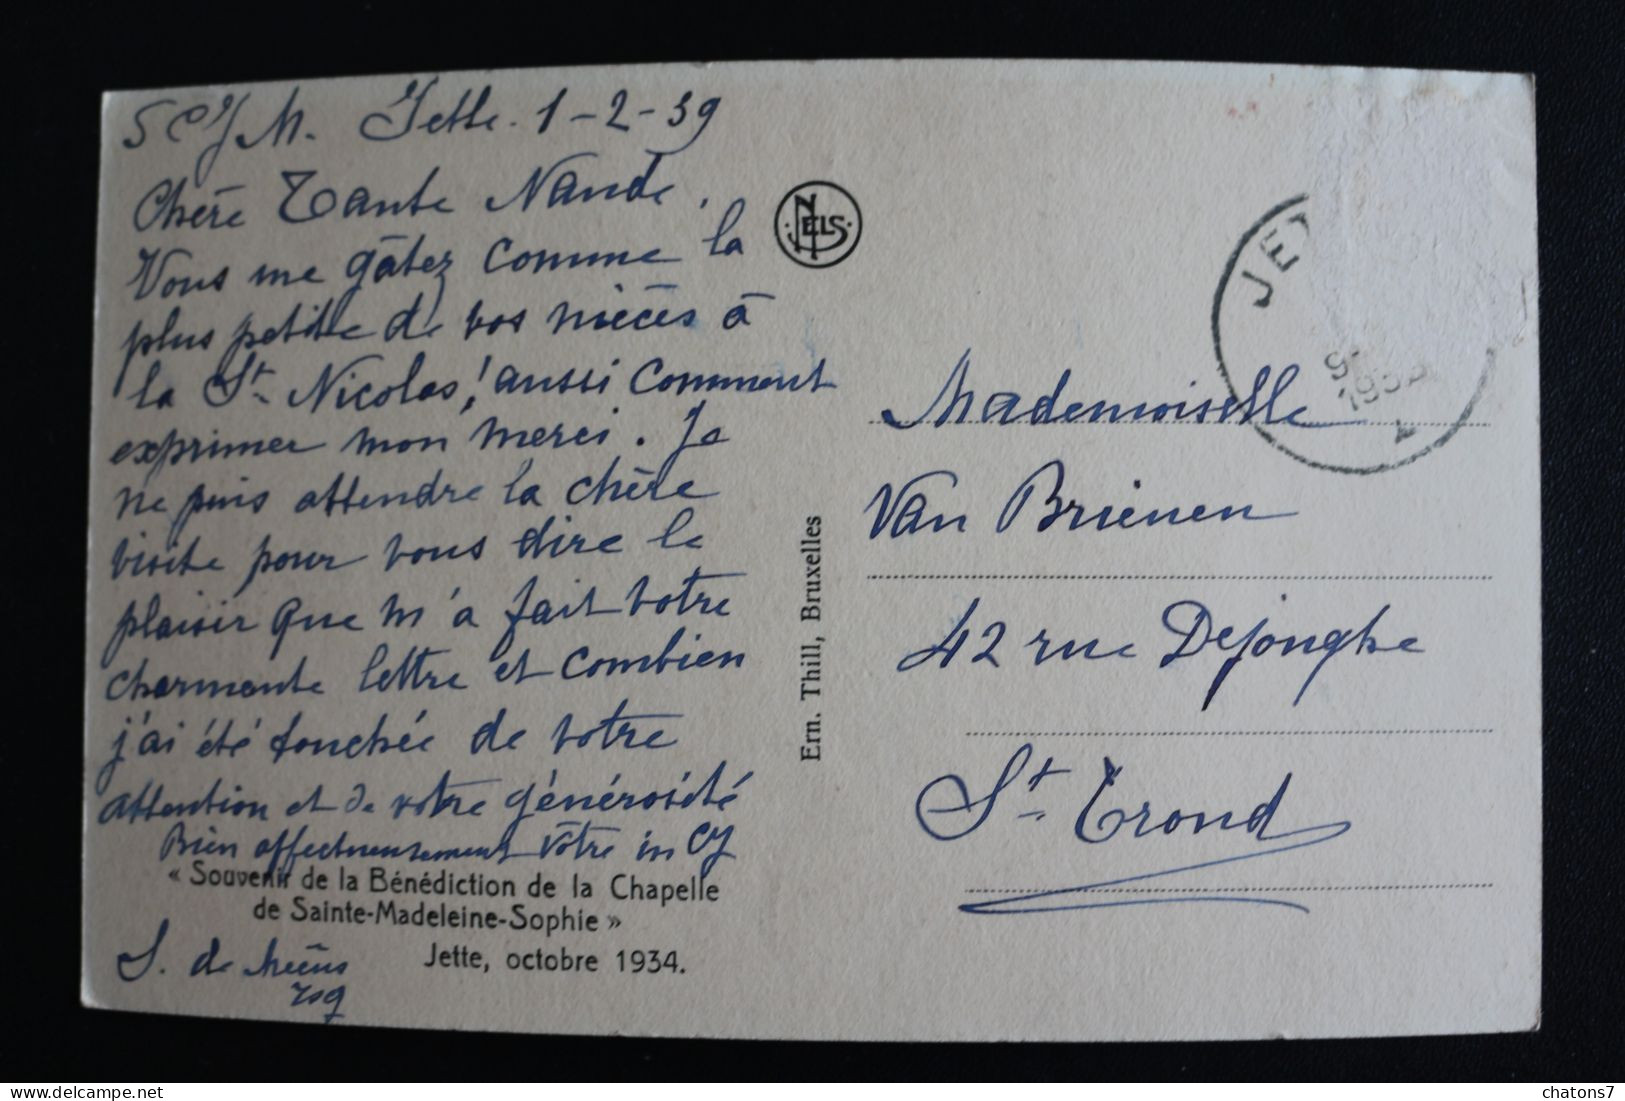 S C J M. Jette. 1-2-39
Chère Tante Nande,
Vous me gâtez comme la
plus petite de vos nièces à
la St. Nicolas! aussi comment
exprimer mon merci. Je
ne puis attendre la chère
visite pour vous dire le
plaisir que m'a fait votre
charmante lettre et combien
j'ai été touchée de votre
attention et de votre générosité
Bien affectueusement vôtre in CJ
« Souvenir de la Bénédiction de la Chapelle
de Sainte-Madeleine-Sophie »
Jette, octobre 1934.
S. de Meeûs
rscj
NELS
Ern. Thill, Bruxelles
JE
Mademoiselle
Van Brienen
42 rue Dejonghe
St. Trond
chatons7